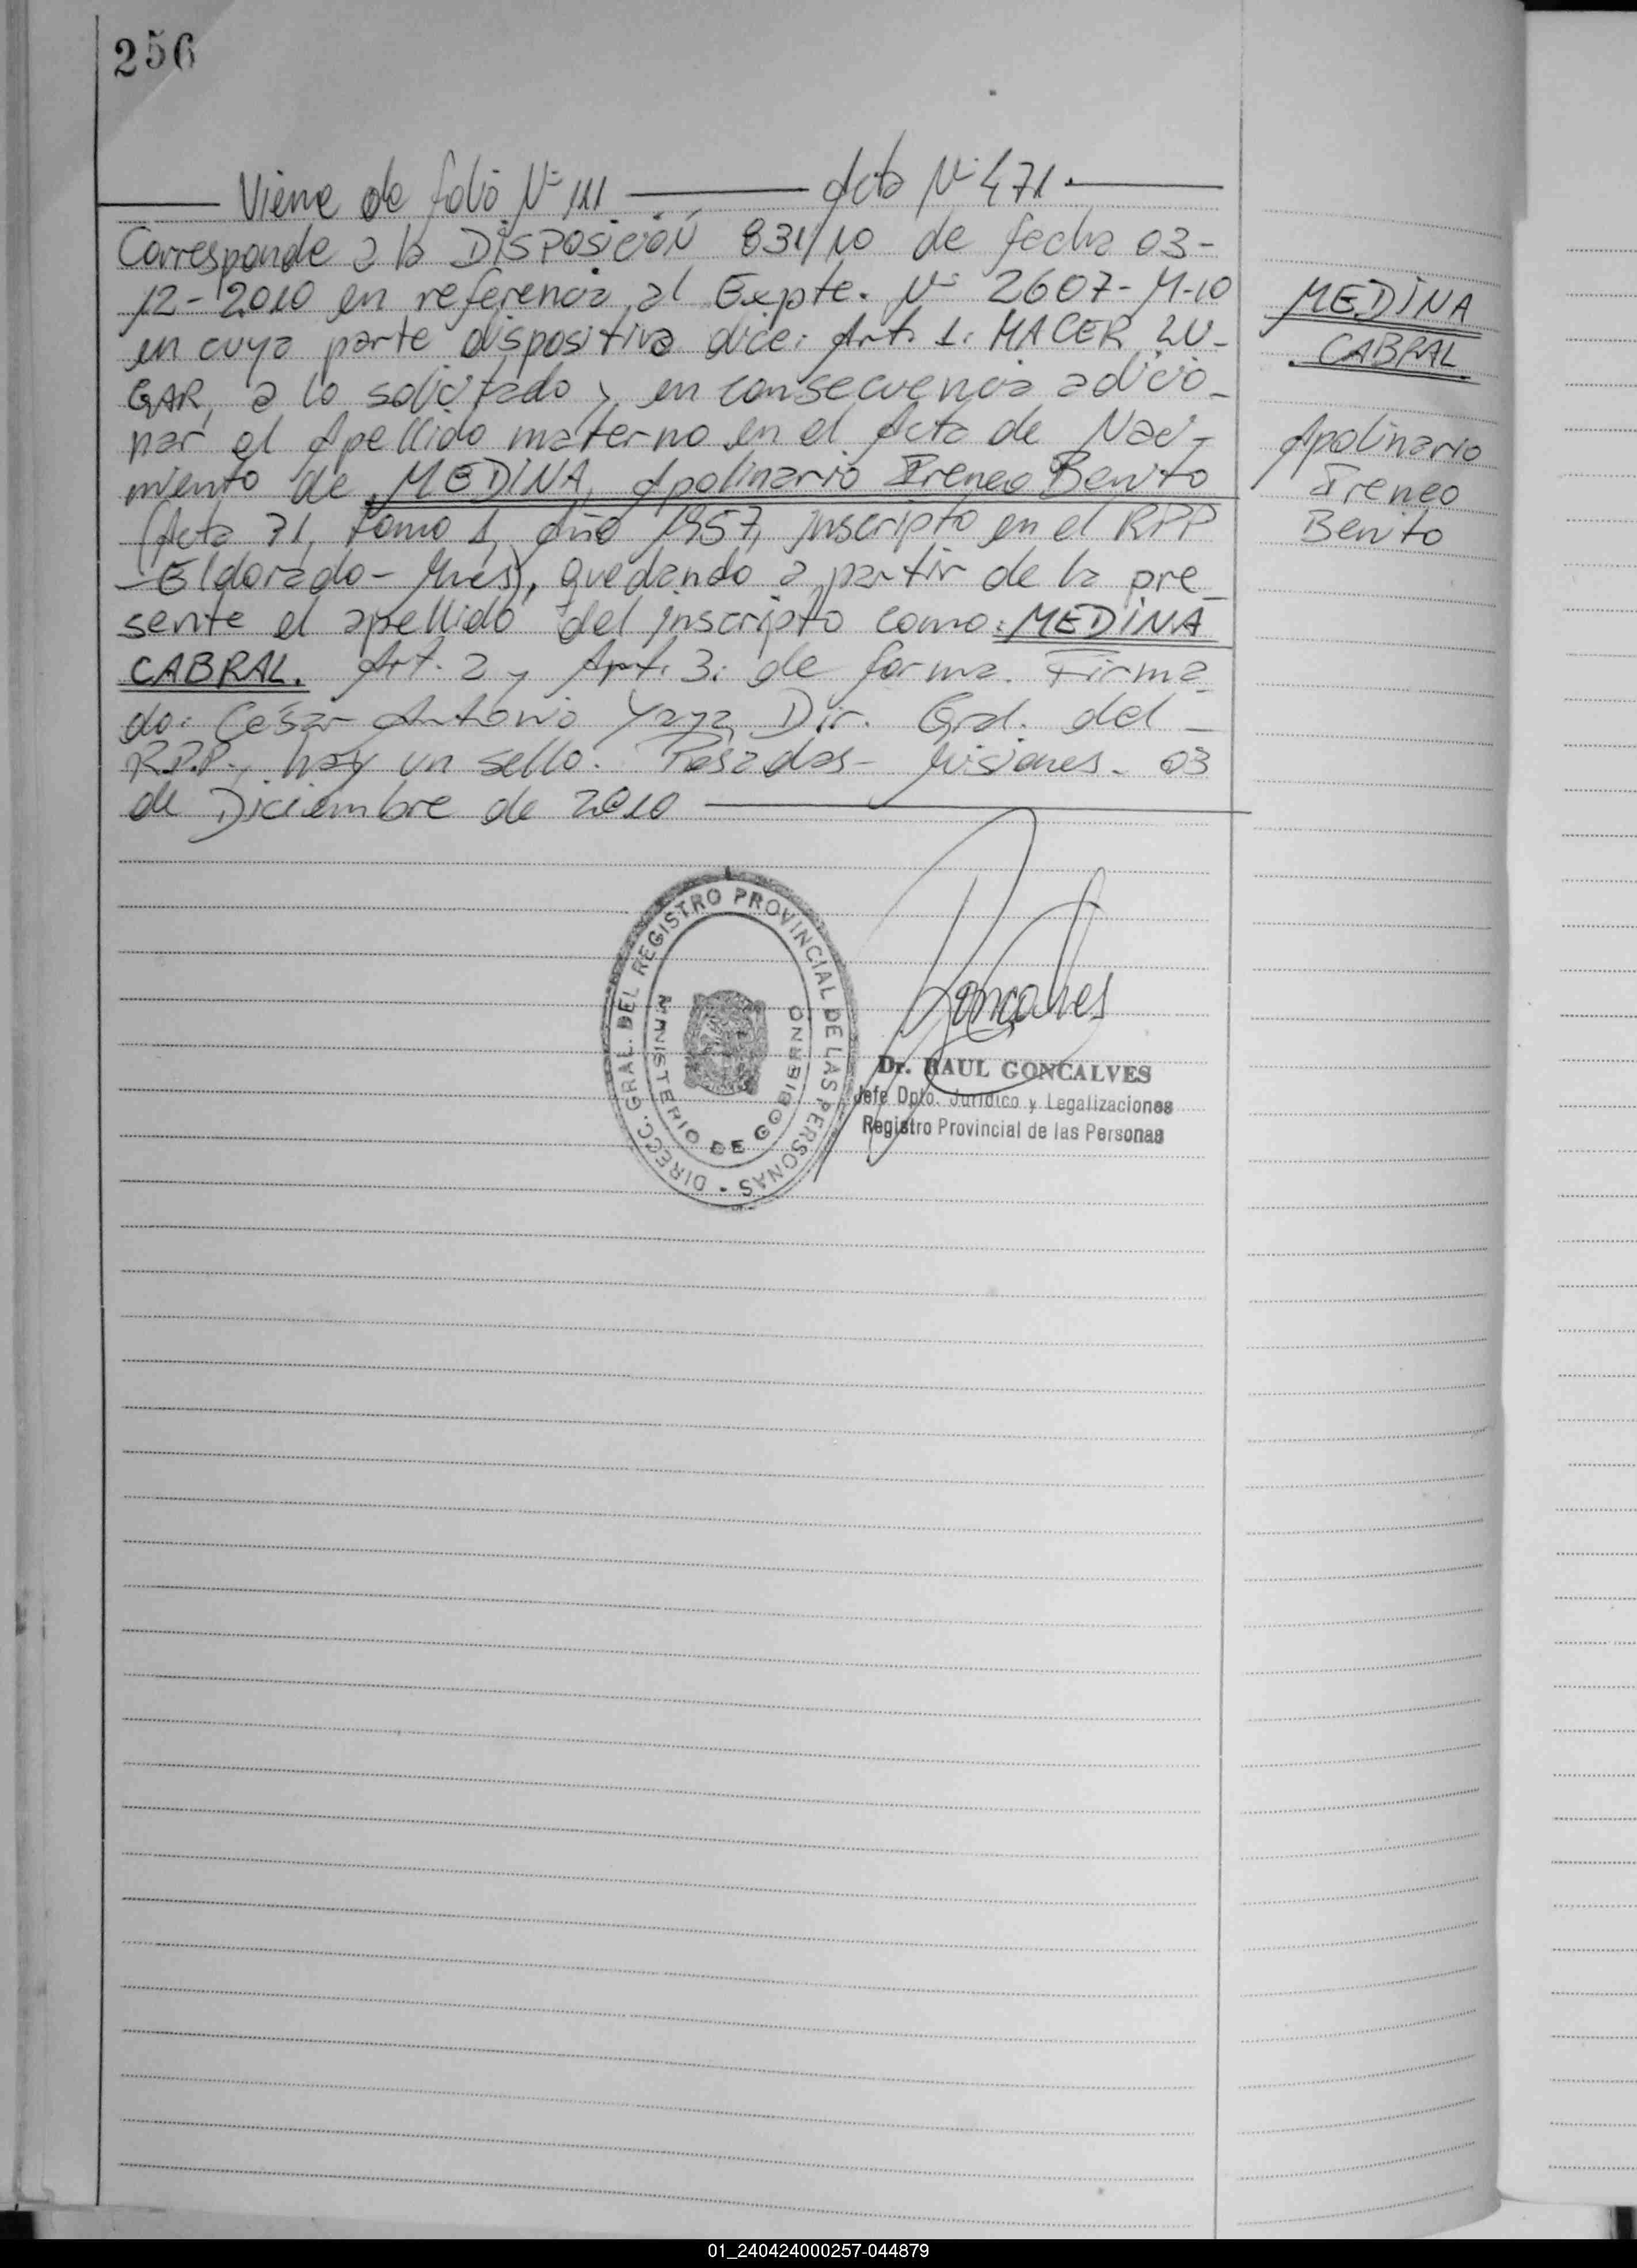 256
Viene de folio Nº 111 Acta Nº 471.
Corresponde a la DISPOSICIÓN 831/10 de fecha 03-
12-2010 en referencia al Expte. Nº 2607-M-10
en cuya parte dispositiva dice: Art. 1: HACER LU-
GAR, a lo solicitado y en consecuencia adicio-
nar el Apellido materno en el Acta de Naci-
miento de MEDINA, Apolinario Ireneo Benito
(Acta 71, tomo 1, año 1957, inscripto en el RPP
-Eldorado- Mnes), quedando a partir de la pre-
sente el apellido del inscripto como: MEDINA
CABRAL. Art. 2 y Art. 3: de forma. Firma-
do: César Antonio Yaya Dir. Gral. del
R.P.P., hay un sello. Posadas- Misiones. 03
de Diciembre de 2010
MEDINA
CABRAL
Apolinario
Ireneo
Benito
DIRECC. GRAL. DEL REGISTRO PROVINCIAL DE LAS PERSONAS -
MINISTERIO DE GOBIERNO
Goncalves
Dr. RAUL GONCALVES
Jefe Dpto. Jurídico y Legalizaciones
Registro Provincial de las Personas
01_240424000257-044879